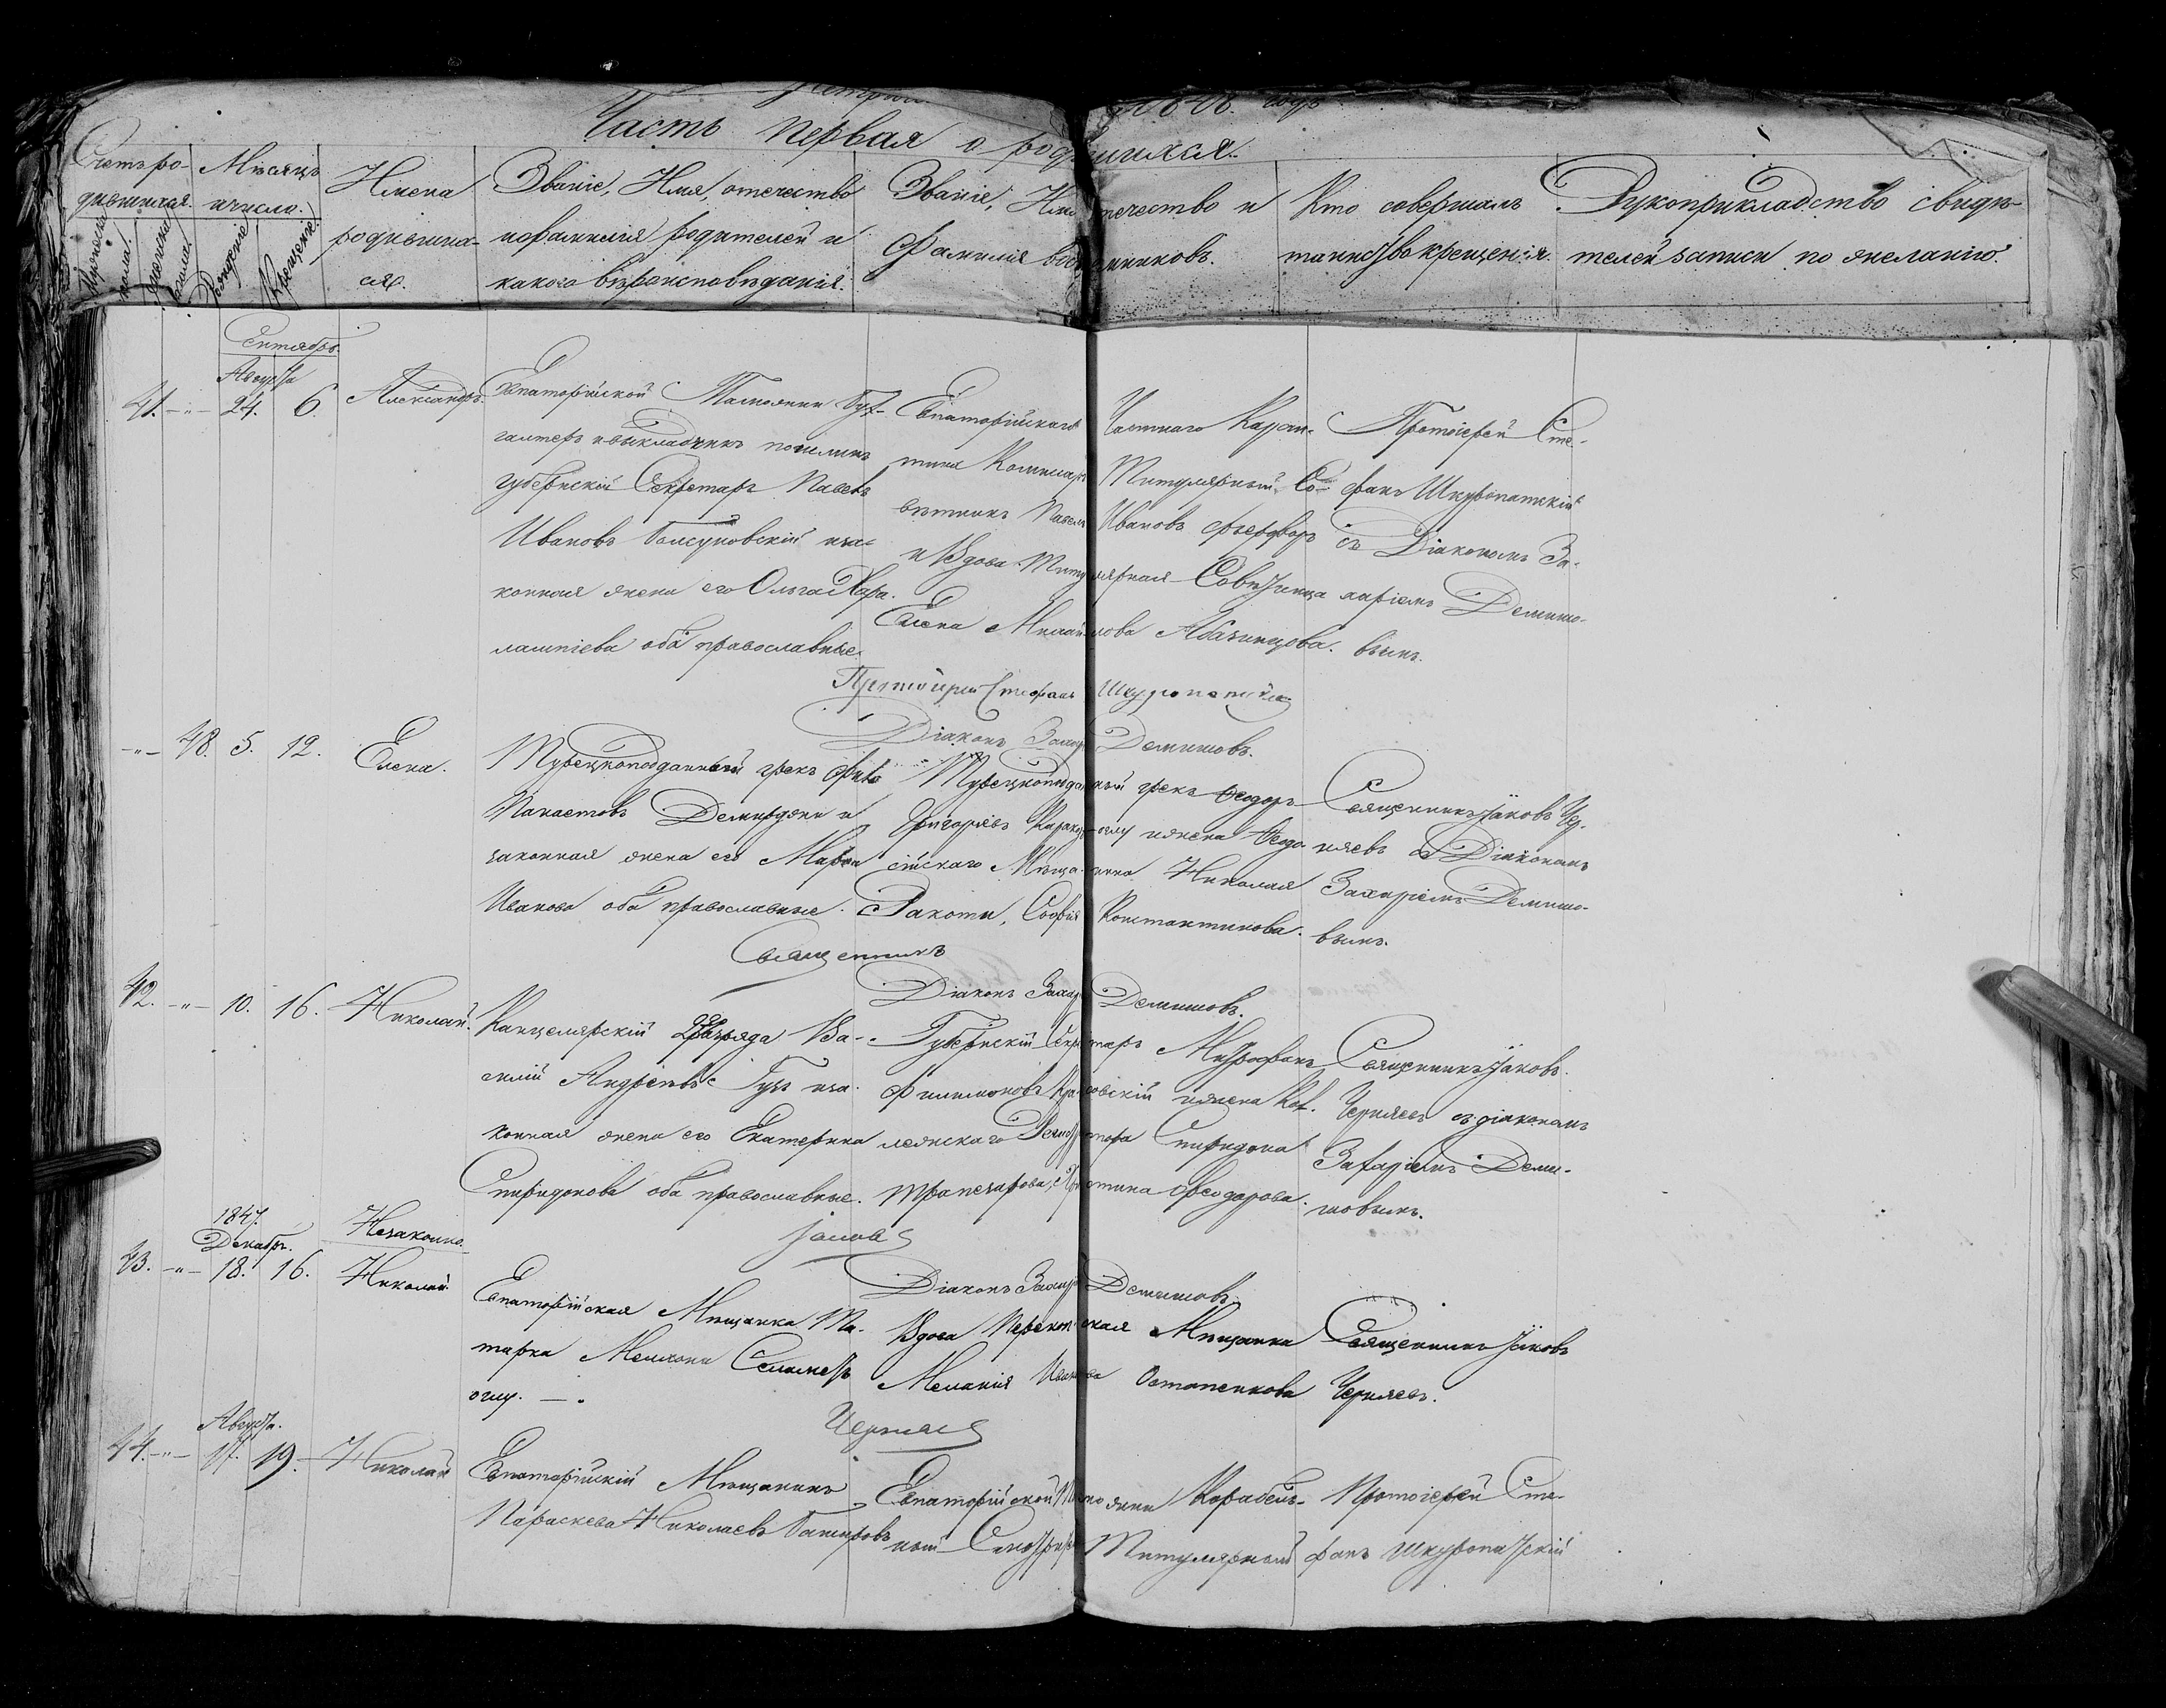 Часть первая о родившихся.
Счетъ ро-
дившихся.
Мѣсяцъ
и число.
Имена
родивших-
ся.
Званіе, Имя, отечество
и фамилія родителей и
какого вѣроисповѣданія.
Званіе, Имя отечество и
Фамилія воспріемниковъ.
Кто совершалъ
таинство крещенія.
Рукоприкладство свидѣ-
телей записи по желанію.
Рожденіе
Крещеніе
Сентябрь.
Августа
41. -"- 24. 6. Александръ.
Евпаторійской Таможни Бух-
галтеръ и выкладчикъ пошлинъ
Губернскій Секретарь Павелъ
Ивановъ и за-
конная жена его Ольга Хара-
лампіева оба православные.
Евпаторійскаго Частнаго Каран-
тина Коммисаръ Титулярный Со-
вѣтникъ Павелъ Ивановъ
и Вдова Титулярная Совѣтница
Елена Михайлова Абазинцова.
Протоіерей Сте-
фанъ Шкуропатскій
съ Діакономъ За-
харіемъ Демишо-
вымъ.
Протоіерей Стефанъ Шкуропатскій
Діаконъ Захарій Демишовъ.
-"- 48. 5. 12. Елена.
Турецкоподданный грекъ
Панаетовъ и
законная жена его Мария
Иванова оба православные.
Турецкоподданный грекъ Ѳеодоръ
Григорьевъ и жена Ѳеодо-
сійскаго Мѣщанина Николая
София Константинова.
Священникъ Іаковъ Чер-
няевъ съ Діакономъ
Захаріемъ Демишо-
вымъ.
Священникъ
Діаконъ Захарій Демишовъ.
42. -"- 10. 16. Николай.
Канцелярскій разряда Ва-
силій Андреевъ и за-
конная жена его Екатерина
Спиридонова оба православные.
Губернскій Секретарь Митрофанъ
Филимоновъ и жена Кол-
лежскаго Регистратора Спиридона
Христина Ѳеодорова.
Священникъ Іаковъ
Черняевъ съ діакономъ
Захаріемъ Деми-
шовымъ.
Іаковъ
Діаконъ Захарій Демишовъ.
1847.
Декабрь. Незаконно.
43. -"- 18. 16. Николай.
Евпаторійская Мѣщанка Та-
тарка
оглу.
Вдова Перекопская Мѣщанка
Меланія Иванова Остапенкова
Священникъ Іаковъ
Черняевъ.
Черняевъ
Августа.
44. -"- 17. 19. Николай
Евпаторійскій Мѣщанинъ
Параскева Николаевъ
Евпаторійской Таможни Карабель-
ный Смотритель Титулярный
Протоіерей Сте-
фанъ Шкуропатскій